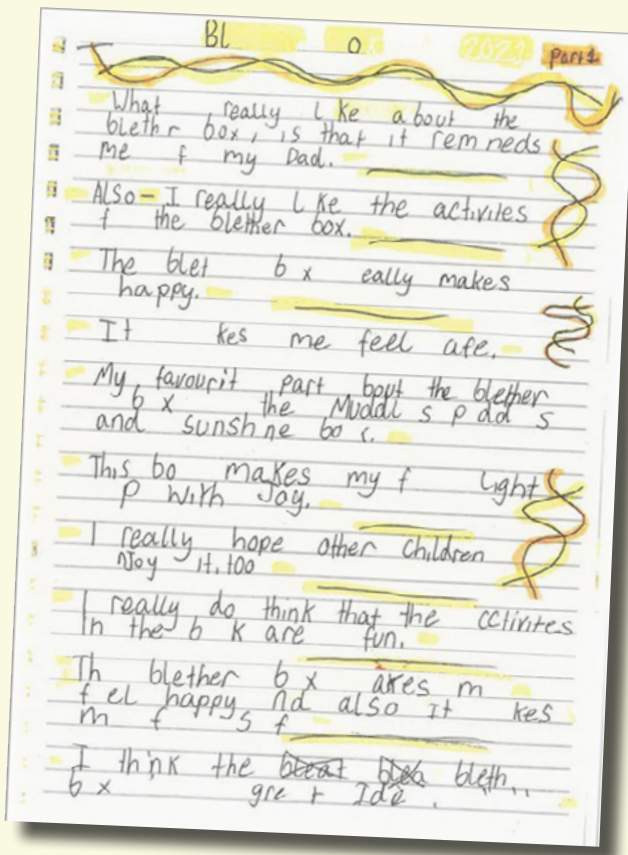 BL o 2021 Part 1
What really L ke about the
blether box, is that it remneds
me f my Dad.
Also - I really L ke the activites
f the blether box.
The blet b x eally makes
happy.
It kes me feel afe.
My favourit part bout the blether
b x the Muddl s p dd s
and sunsh ne bo
This bo makes my f Light
p with Joy.
I really hope other Children
Njoy it. too
I really do think that the cctivites
In the b k are fun.
Th blether b x akes m
f el happy nd also It kes
m f s f
I think the bleth
b x gre t Ide .